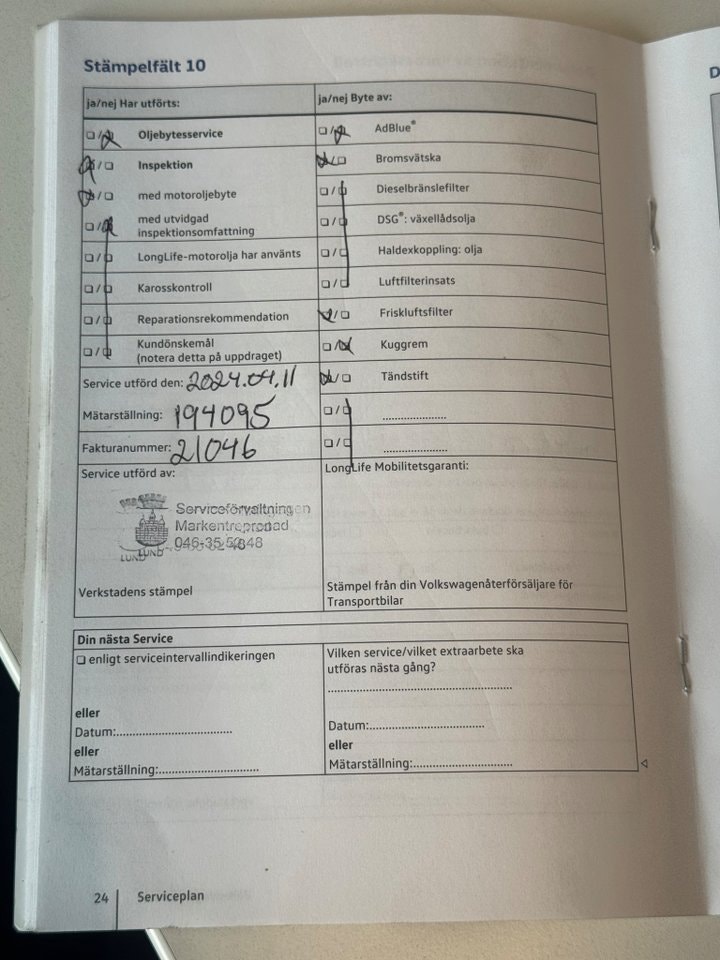 Stämpelfält 10
ja/nej Har utförts:
Oljebytesservice
Inspektion
med motoroljebyte
med utvidgad
inspektionsomfattning
LongLife-motorolja har använts
Karosskontroll
Reparationsrekommendation
Kundönskemål
(notera detta på uppdraget)
Service utförd den: 2024.04.11
Mätarställning: 194095
Fakturanummer: 21046
ja/nej Byte av:
AdBlue®
Bromsvätska
Dieselbränslefilter
DSG®: växellådsolja
Haldexkoppling: olja
Luftfilterinsats
Friskluftsfilter
Kuggrem
Tändstift
Service utförd av:
Serviceförvaltningen
Markentreprenad
LUND
Verkstadens stämpel
LongLife Mobilitetsgaranti:
Stämpel från din Volkswagenåterförsäljare för
Transportbilar
Din nästa Service
enligt serviceintervallindikeringen
eller
Datum:
eller
Mätarställning:
Vilken service/vilket extraarbete ska
utföras nästa gång?
Datum:
eller
Mätarställning:
24
Serviceplan
D